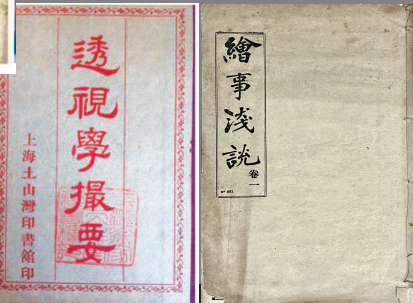 透視學撮要
上海土山灣印書館印
繪事淺說
卷一